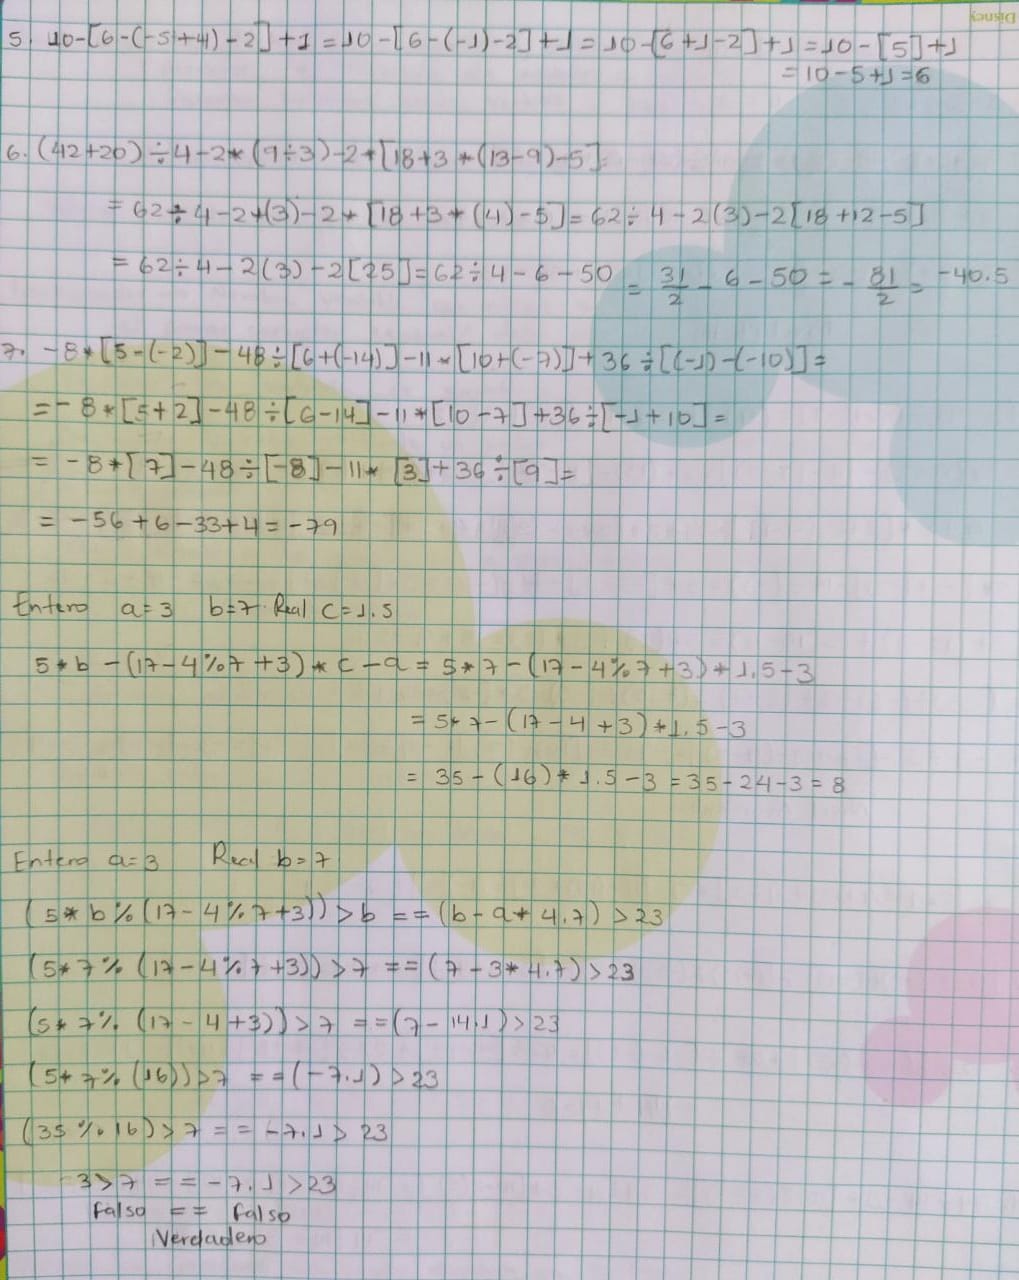 Disney
5. 10-[6-(-5+4)-2]+1=10-[6-(-1)-2]+1=10-[6+1-2]+1=10-[5]+1
=10-5+1=6
6. (42+20)÷4-2*(9÷3)-2*[18+3*(13-9)-5]=
=62÷4-2*(3)-2*[18+3*(4)-5]=62÷4-2(3)-2[18+12-5]
=62÷4-2(3)-2[25]=62÷4-6-50=31/2-6-50=-81/2=-40.5
7. -8*[5-(-2)]-48÷[6+(-14)]-11*[10+(-7)]+36÷[(-1)-(-10)]=
=-8*[5+2]-48÷[6-14]-11*[10-7]+36÷[-1+10]=
=-8*[7]-48÷[-8]-11*[3]+36÷[9]=
=-56+6-33+4=-79
Entero a=3 b=7 Real c=1.5
5*b-(17-4%7+3)*c-a=5*7-(17-4%7+3)*1.5-3
=5*7-(17-4+3)*1.5-3
=35-(16)*1.5-3=35-24-3=8
Entero a=3 Real b=7
(5*b%(17-4%7+3))>b==(b-a*4.7)>23
(5*7%(17-4%7+3))>7==(7-3*4.7)>23
(5*7%(17-4+3))>7==(7-14.1)>23
(5*7%(16))>7==(-7.1)>23
(35%16)>7==-7.1>23
3>7==-7.1>23
Falso == Falso
Verdadero